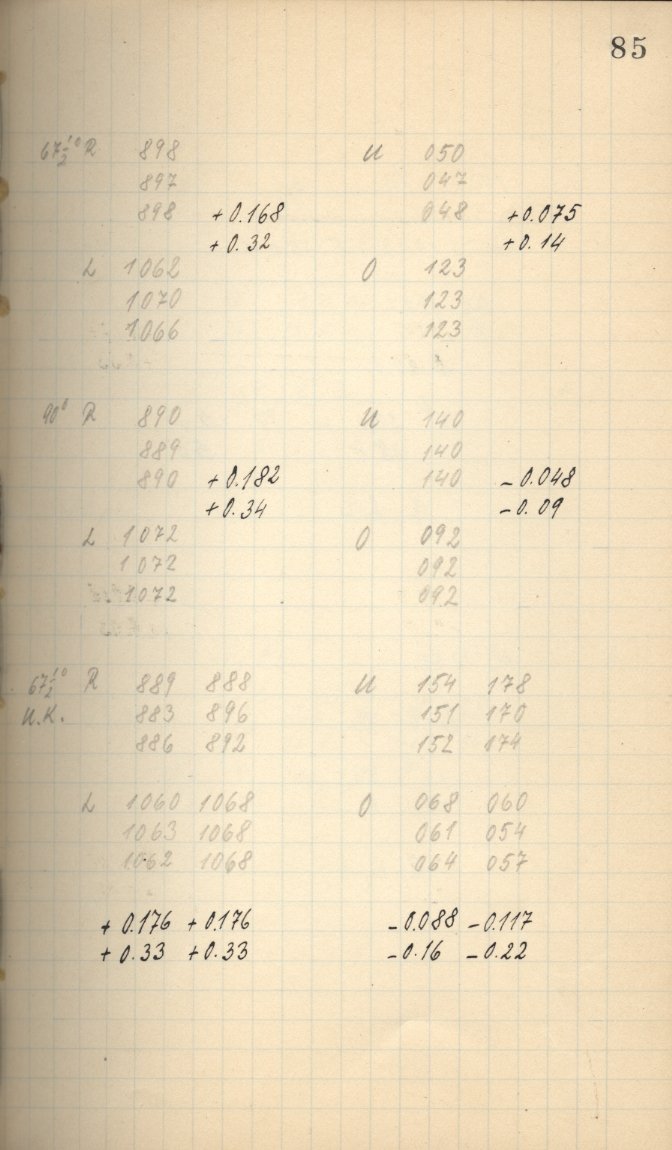 85
67½° R 898 U 050
897 047
898 +0.168 048 +0.075
+0.32 +0.14
L 1062 O 123
1070 123
1066 123
90° R 890 U 140
889 140
890 +0.182 140 -0.048
+0.34 -0.09
L 1072 O 092
1072 092
1072 092
67½° R 889 888 U 154 178
U.K. 883 896 151 170
886 892 152 174
L 1060 1068 O 068 060
1063 1068 061 054
1062 1068 064 057
+0.176 +0.176 -0.088 -0.117
+0.33 +0.33 -0.16 -0.22